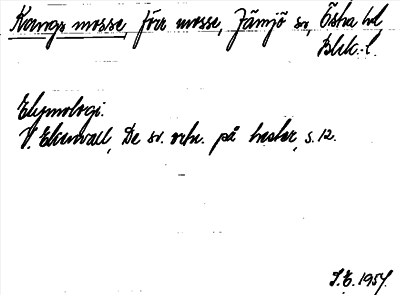 Kangsmosse, förr mosse, Jämjö sn, Östra hd
Blek. l.
Etymologi.
V. Ekenvall, De sv. ortn. på hester, s. 12.
S.E. 1954.